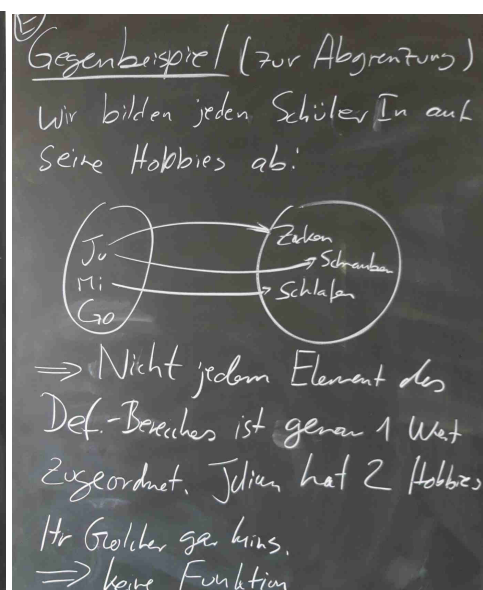 E
Gegenbeispiel (zur Abgrenzung)
Wir bilden jeden Schüler In auf
seine Hobbies ab:
Zocken
Ju
Schrauben
Mi
Schlafen
Go
=> Nicht jedem Element des
Def.-Bereiches ist genau 1 Wert
zugeordnet. Julian hat 2 Hobbies
Hr Golcher gar keins.
=> keine Funktion